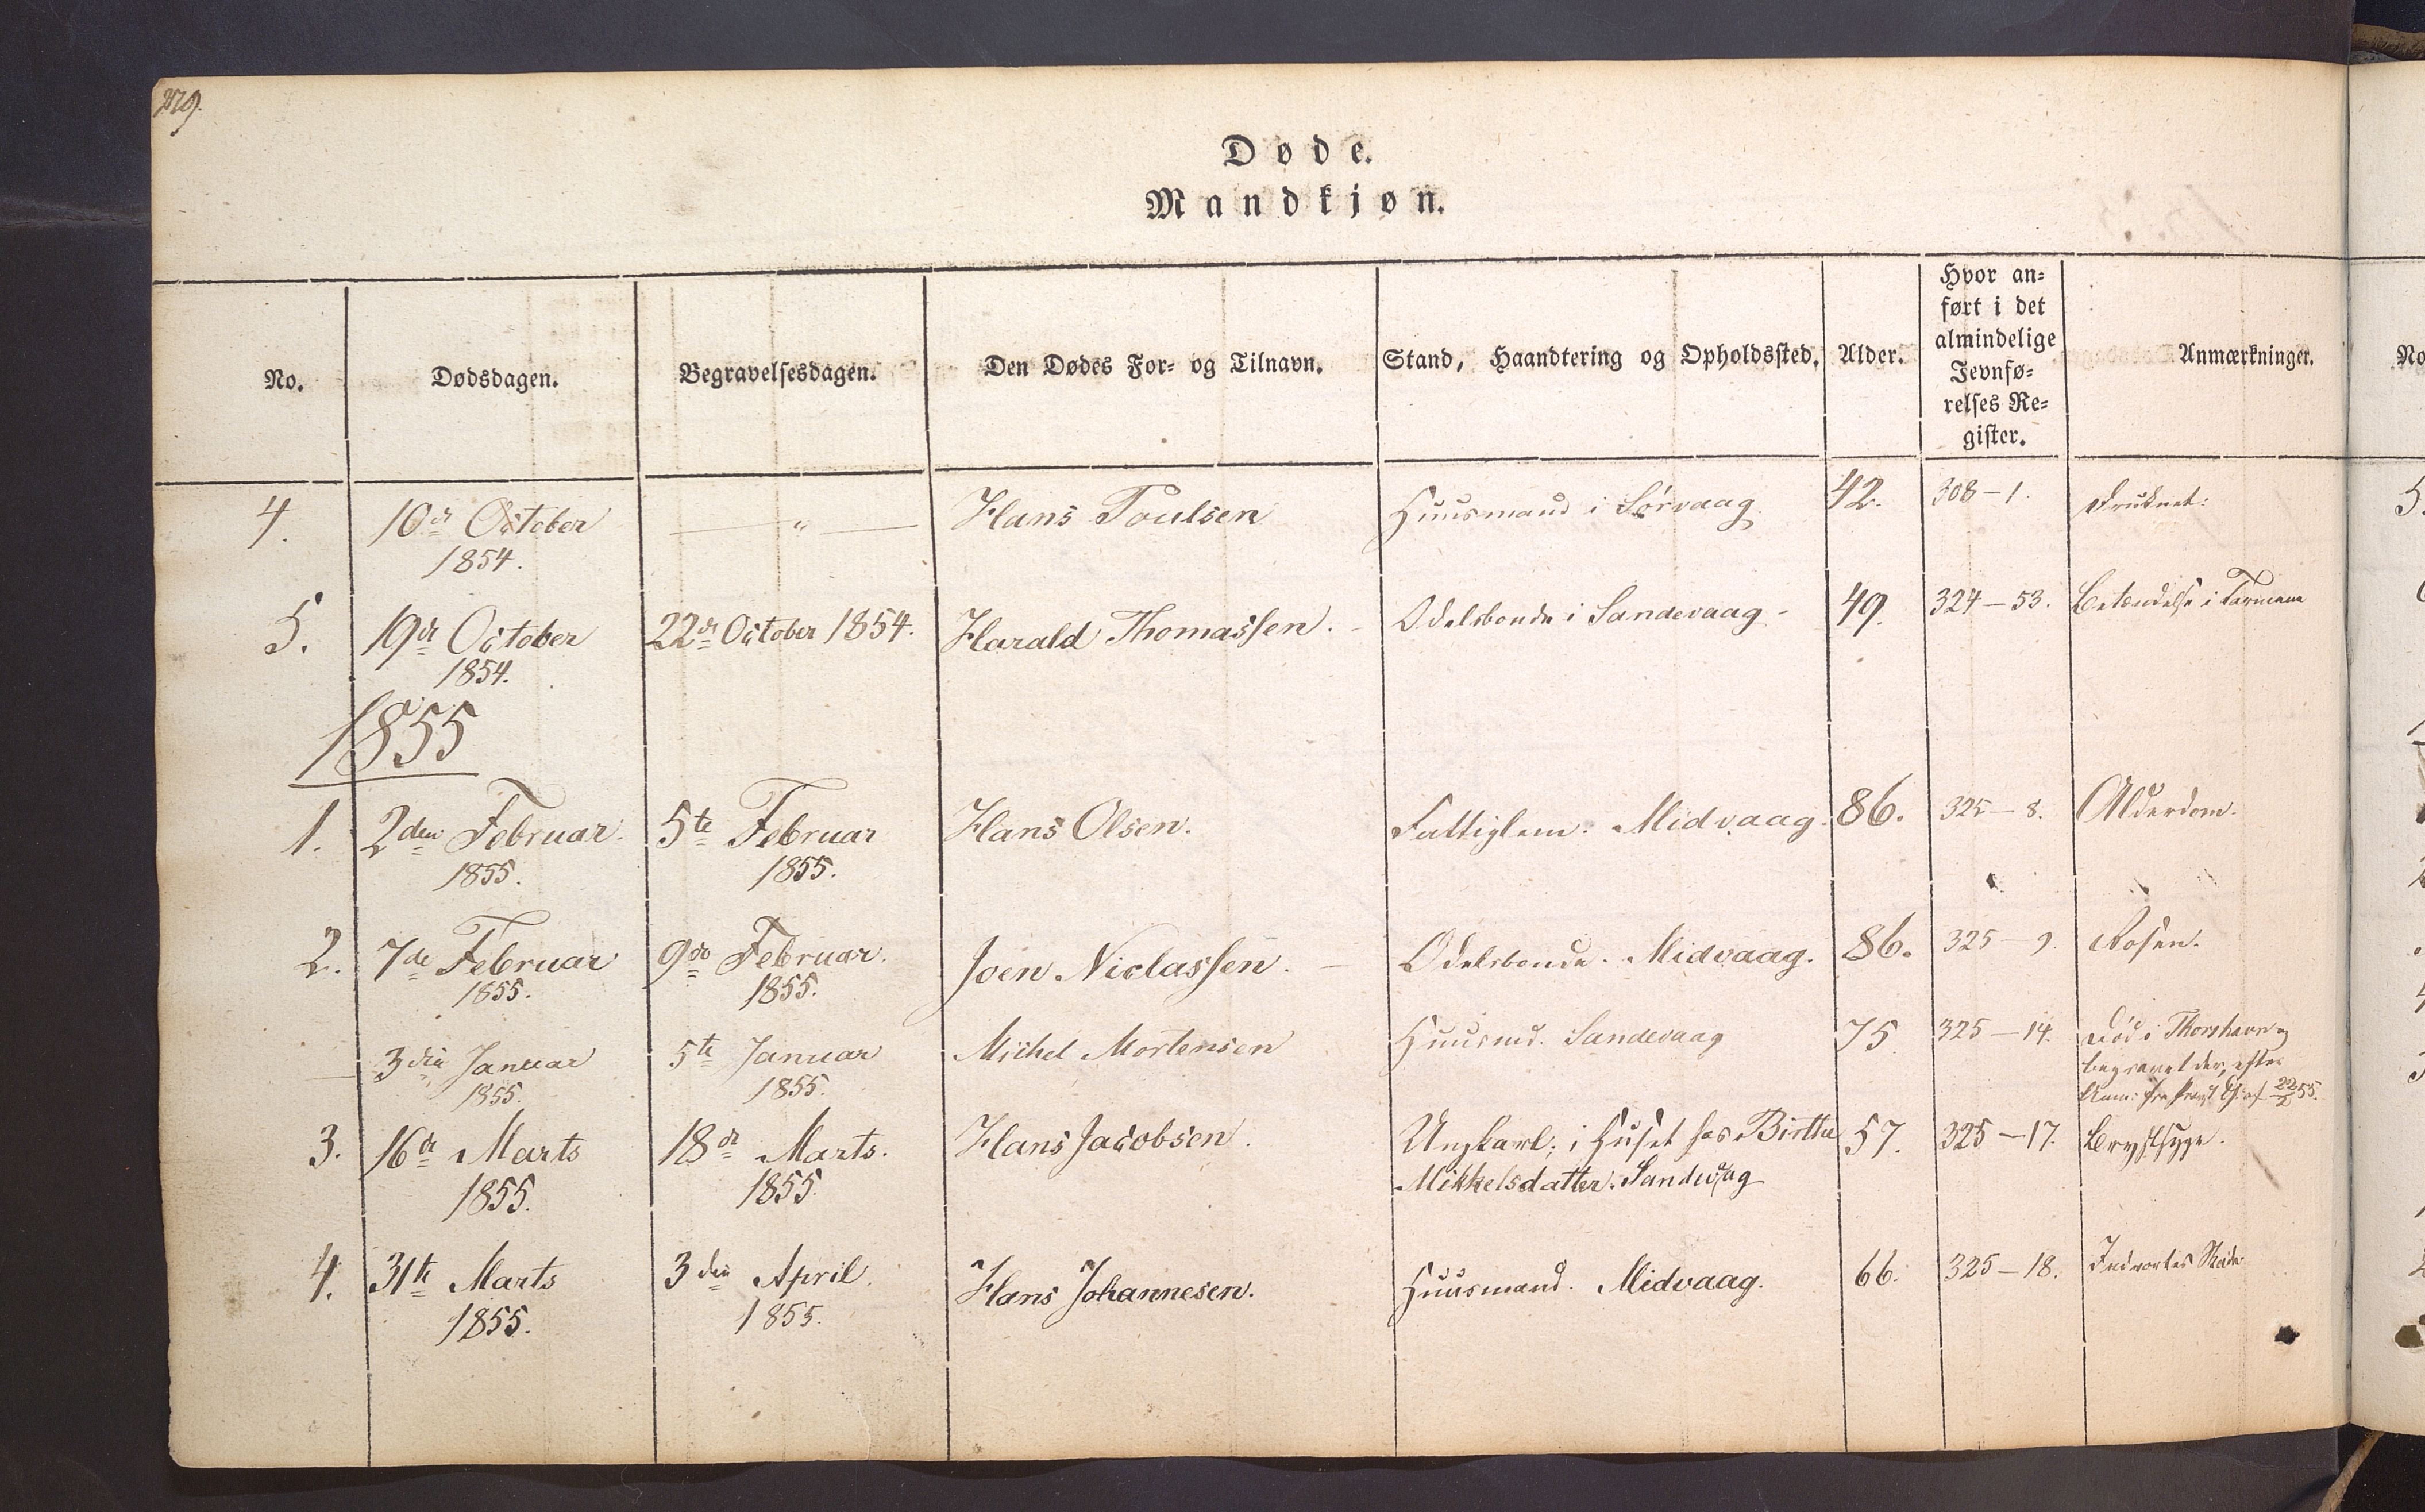 279.
Døde.
Mandkjøn.
No. Dødsdagen. Begravelsesdagen. Den Dødes For- og Tilnavn. Stand, Haandtering og Opholdssted. Alder. Hvor an=
ført i det
almindelige
Jevnfø=
relses Re=
gister. Anmærkninger.
4. 10de October — " — Hans Poulsen Huusmand i Sørvaag. 42. 308 - 1. Druknet.
1854.
5. 19de October 22de October 1854. Harald Thomassen. - Odelsbonde i Sandevaag - 49. 324 - 53. Betændelse i Tarmene
1854.
1855
1. 2den Februar. 5te Februar Hans Olsen. Fattiglem. Midvaag. 86. 325 - 8. Alderdom.
1855. 1855.
2. 7de Februar 9de Februar. Joen Niclassen. - Odelsbonde. Midvaag. 86. 325 - 9. Rosen.
1855. 1855.
— 3die Januar 5te Januar Michel Mortensen Huusmd. Sandevaag 75. 325 - 14. Død i Thorshavn og
1855. 1855. begravet der, efter
Anm: fra Provst 22/2 55.
3. 16de Marts 18de Marts. Hans Jacobsen. Ungkarl; i Huset hos Birthe 57. 325 - 17. Brystsyge.
1855. 1855. Mikkelsdatter. Sandevaag
4. 31te Marts 3die April. Hans Johannesen. Huusmand. Midvaag. 66. 325 - 18. Indvortes Skade
1855. 1855.
No
5.